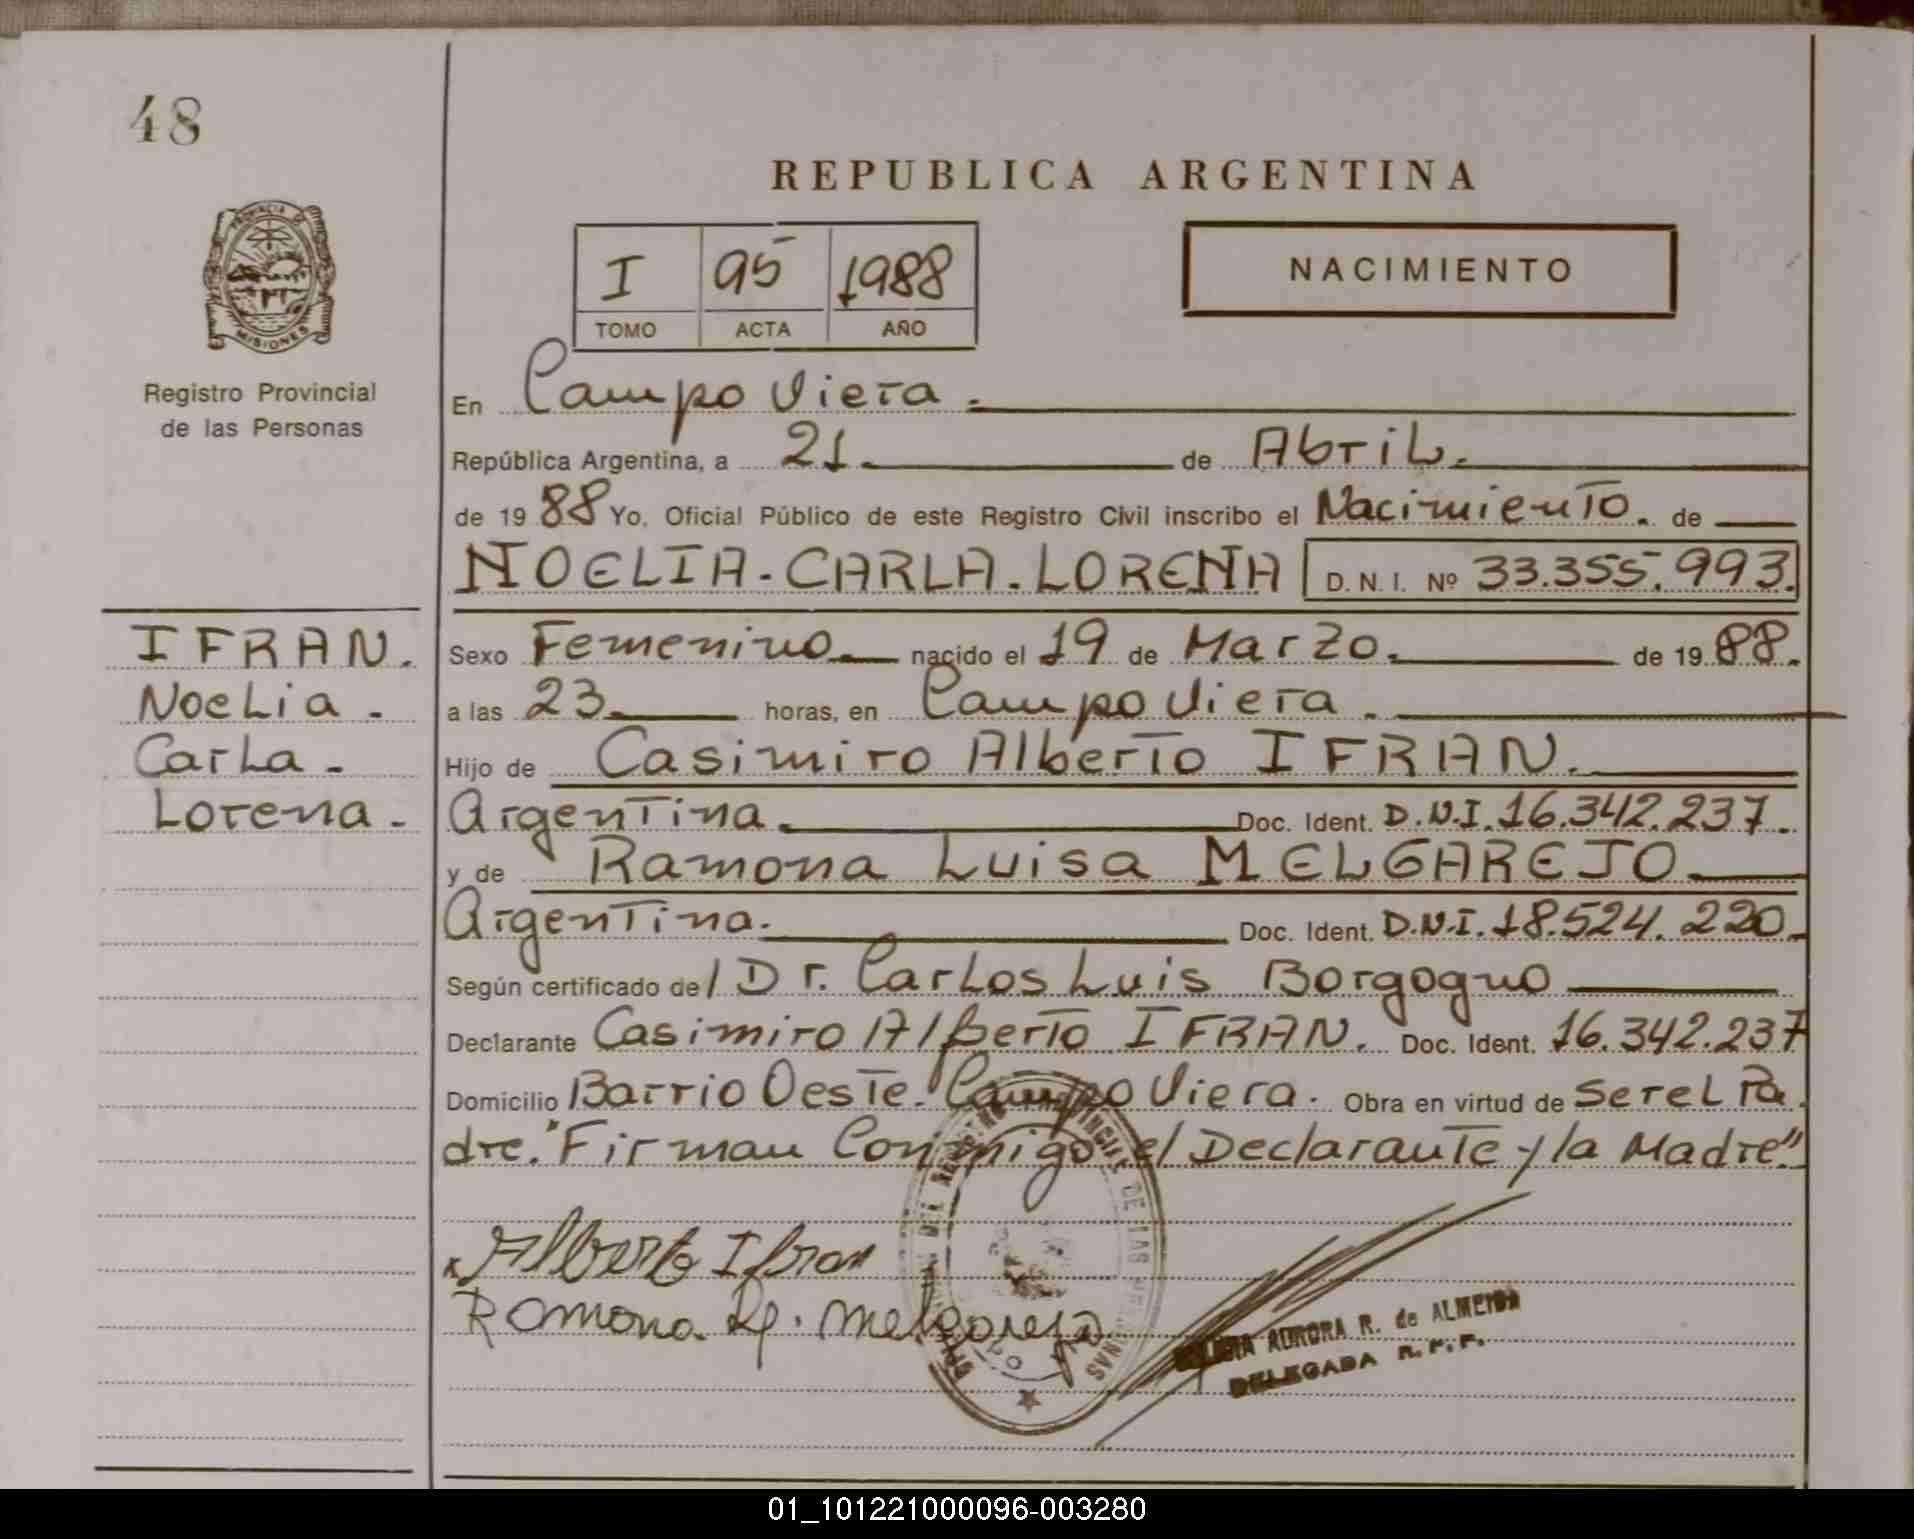 48
REPUBLICA ARGENTINA
PROVINCIA DE
MISIONES
I 95 1988
TOMO ACTA AÑO
NACIMIENTO
Registro Provincial
de las Personas
En Campo Viera.
República Argentina, a 21. de Abril.
de 19 88 Yo, Oficial Público de este Registro Civil inscribo el Nacimiento. de
NOELIA-CARLA-LORENA D. N. I. Nº 33.355.993.
IFRAN.
Noelia -
Carla -
Lorena -
Sexo Femenino nacido el 19 de Marzo. de 19 88.
a las 23 horas, en Campo Viera.
Hijo de Casimiro Alberto IFRAN.
Argentina. Doc. Ident. D.N.I. 16.342.237.
y de Ramona Luisa MELGAREJO
Argentina. Doc. Ident. D.N.I. 18.524.220.
Según certificado del Dr. Carlos Luis Borgogno
Declarante Casimiro Alberto IFRAN. Doc. Ident. 16.342.237
Domicilio Barrio Oeste. Campo Viera. Obra en virtud de ser el Pa
dre. "Firman Conmigo el Declarante y la Madre"
Alberto Ifran
Ramona L. Melgarejo
DE LAS
AURORA R. de ALMEIDA
DELEGADA R. P. P.
01_101221000096-003280